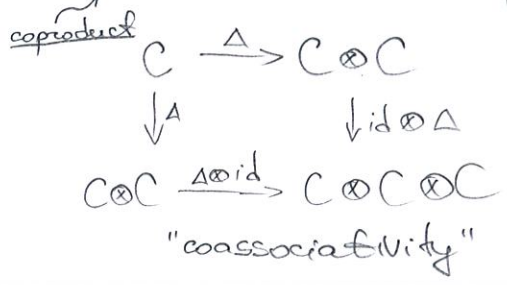 coproduct
C Δ→ C⊗C
↓Δ ↓id⊗Δ
C⊗C Δ⊗id→ C⊗C⊗C
"coassociativity"